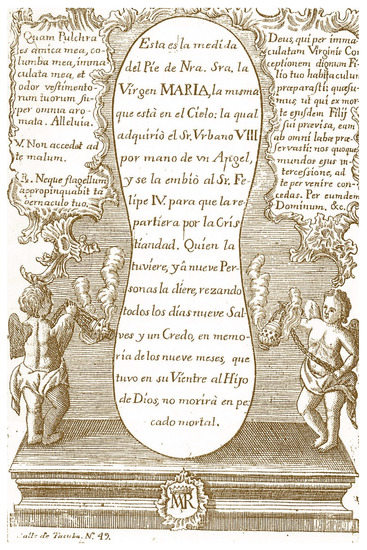 Quam Pulchra
es amica mea, co-
lumba mea, imma
culata mea, et
odor vestimento-
rum tuorum su-
per omnia aro-
mata. Alleluia.
V. Non accedat ad
te malum.
R. Neque flagellum
appropinquabit ta
bernaculo tuo.
Esta es la medida
del Pie de Nra. Sra. la
Virgen MARIA, la misma
que está en el Cielo: la qual
adquirió el Sr. Vrbano VIII
por mano de vn Angel,
y se la embió al Sr. Fe-
lipe IV. para que la re-
partiera por la Cris
tiandad. Quien la
tuviere, y â nueve Per-
sonas la diere, rezando
todos los días nueve Sal-
ves y un Credo, en memo-
ria de los nueve meses, que
tuvo en su Vientre al Hijo
de Dios, no morirà en pe-
cado mortal.
Deus, qui per imma
culatam Virginis Con
ceptionem dignum Fi
lio tuo habitaculum
præparasti quæsu-
mus, ut qui ex mor-
te ejusdem Filij
sui prævisa, eam
ab omni labe præ-
servasti; nos quoque
mundos ejus in-
tercessione, ad
te pervenire con-
cedas. Per eumdem
Dominum, &c.
MR
Calle de Tacuba, N.º 49.